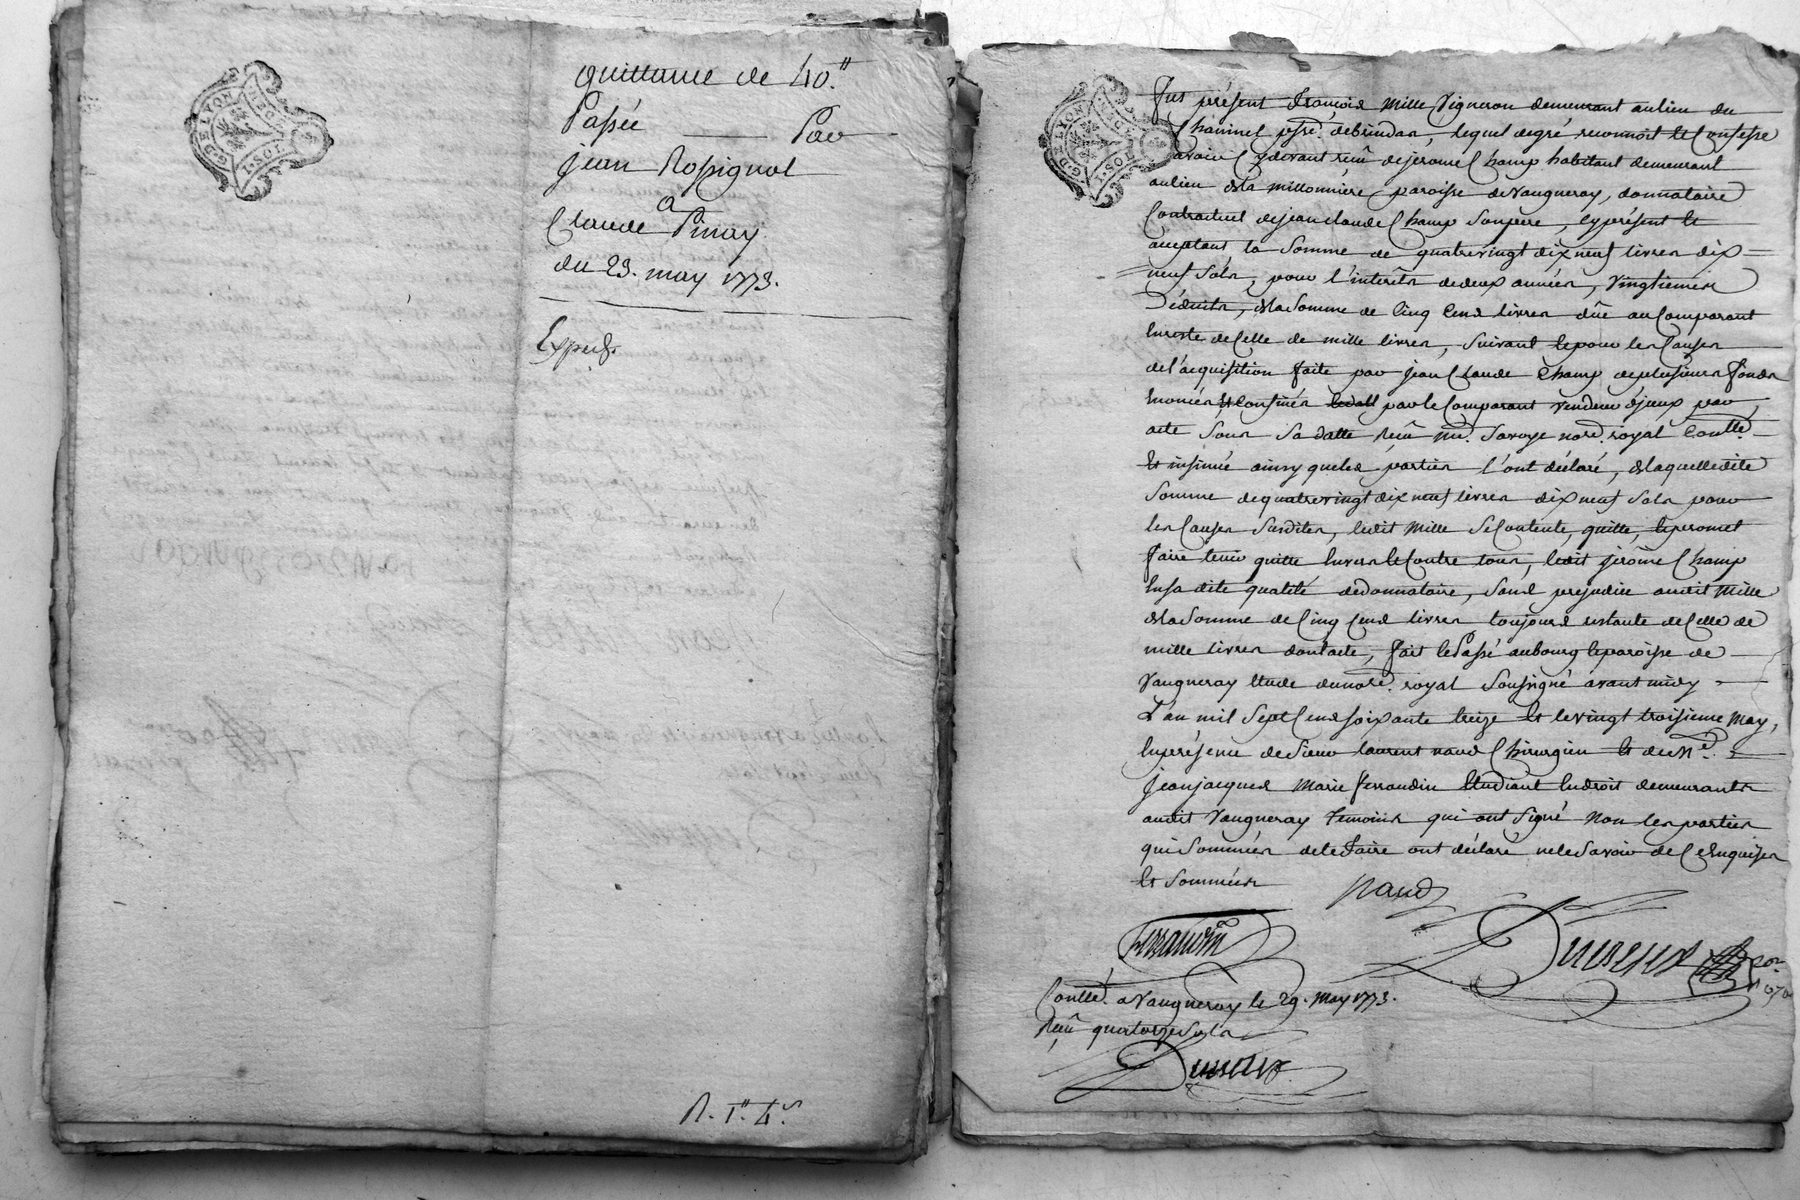 G. DE LYON
1. SOL
quittance de 40.tt
Passée — Par
jean Rossignol
a
Claude Pinay
du 23. may 1773.
Exped.
R. 1.tt 4.s
G. DE LYON
1. SOL
Fut présent François Mille Vigneron demeurant au lieu du
psse. de brindas, lequel de gré reconnoit Et Confesse
avoir Cydevant reçu de jerome Champ habitant demeurant
au lieu de la millonniere paroisse de Vaugneray, donnataire
Contractuel de jean claude Champ Son pere, cy présent Et
acceptant la Somme de quatrevingt dix neuf livres dix =
neuf Sols, pour l'interêts de deux années, Vingtiemes
Déduits, de la Somme de Cinq Cens livres dûe au Comparant
En reste de Celle de mille livres, Suivant Et pour les Causes
de l'acquisition faite par jean Claude Champ de plusieurs fonds
Enoncés Et Confinés par le Comparant vendeur d'jceux par
acte Sous Sa datte reçu me. Savoye nore. royal Contlé.
Et insinué ainsy que les parties l'ont déclaré, de laquelle dite
Somme de quatrevingt dix neuf livres dix neuf Sols pour
les Causes Susdites, ledit Mille Se Contente, quitte, Et promet
faire tenir quitte Envers Et Contre tous, ledit jerôme Champ
En sa dite qualité de donnataire, Sans prejudice audit Mille
de la Somme de Cinq Cens livres toujours restante de Celle de
mille livres dont acte, fait Et Passé au bourg Et paroisse de
Vaugneray Etude du nore. royal Soussigné avant midy
L'an mil Sept Cens soixante treize Et le vingt troisieme May,
En présence de Sieur laurent naud Chirurgien Et de Me.
jean jacques Marie ferrandin Etudiant En droit demeurants
audit Vaugneray temoins qui ont Signé Non les parties
qui Sommées de le faire ont déclaré ne le Savoir de Ce Enquises
Et Sommées
naud
ferrandin
Contlé. a Vaugneray le 29. May 1773.
Reçu quatorze Sols